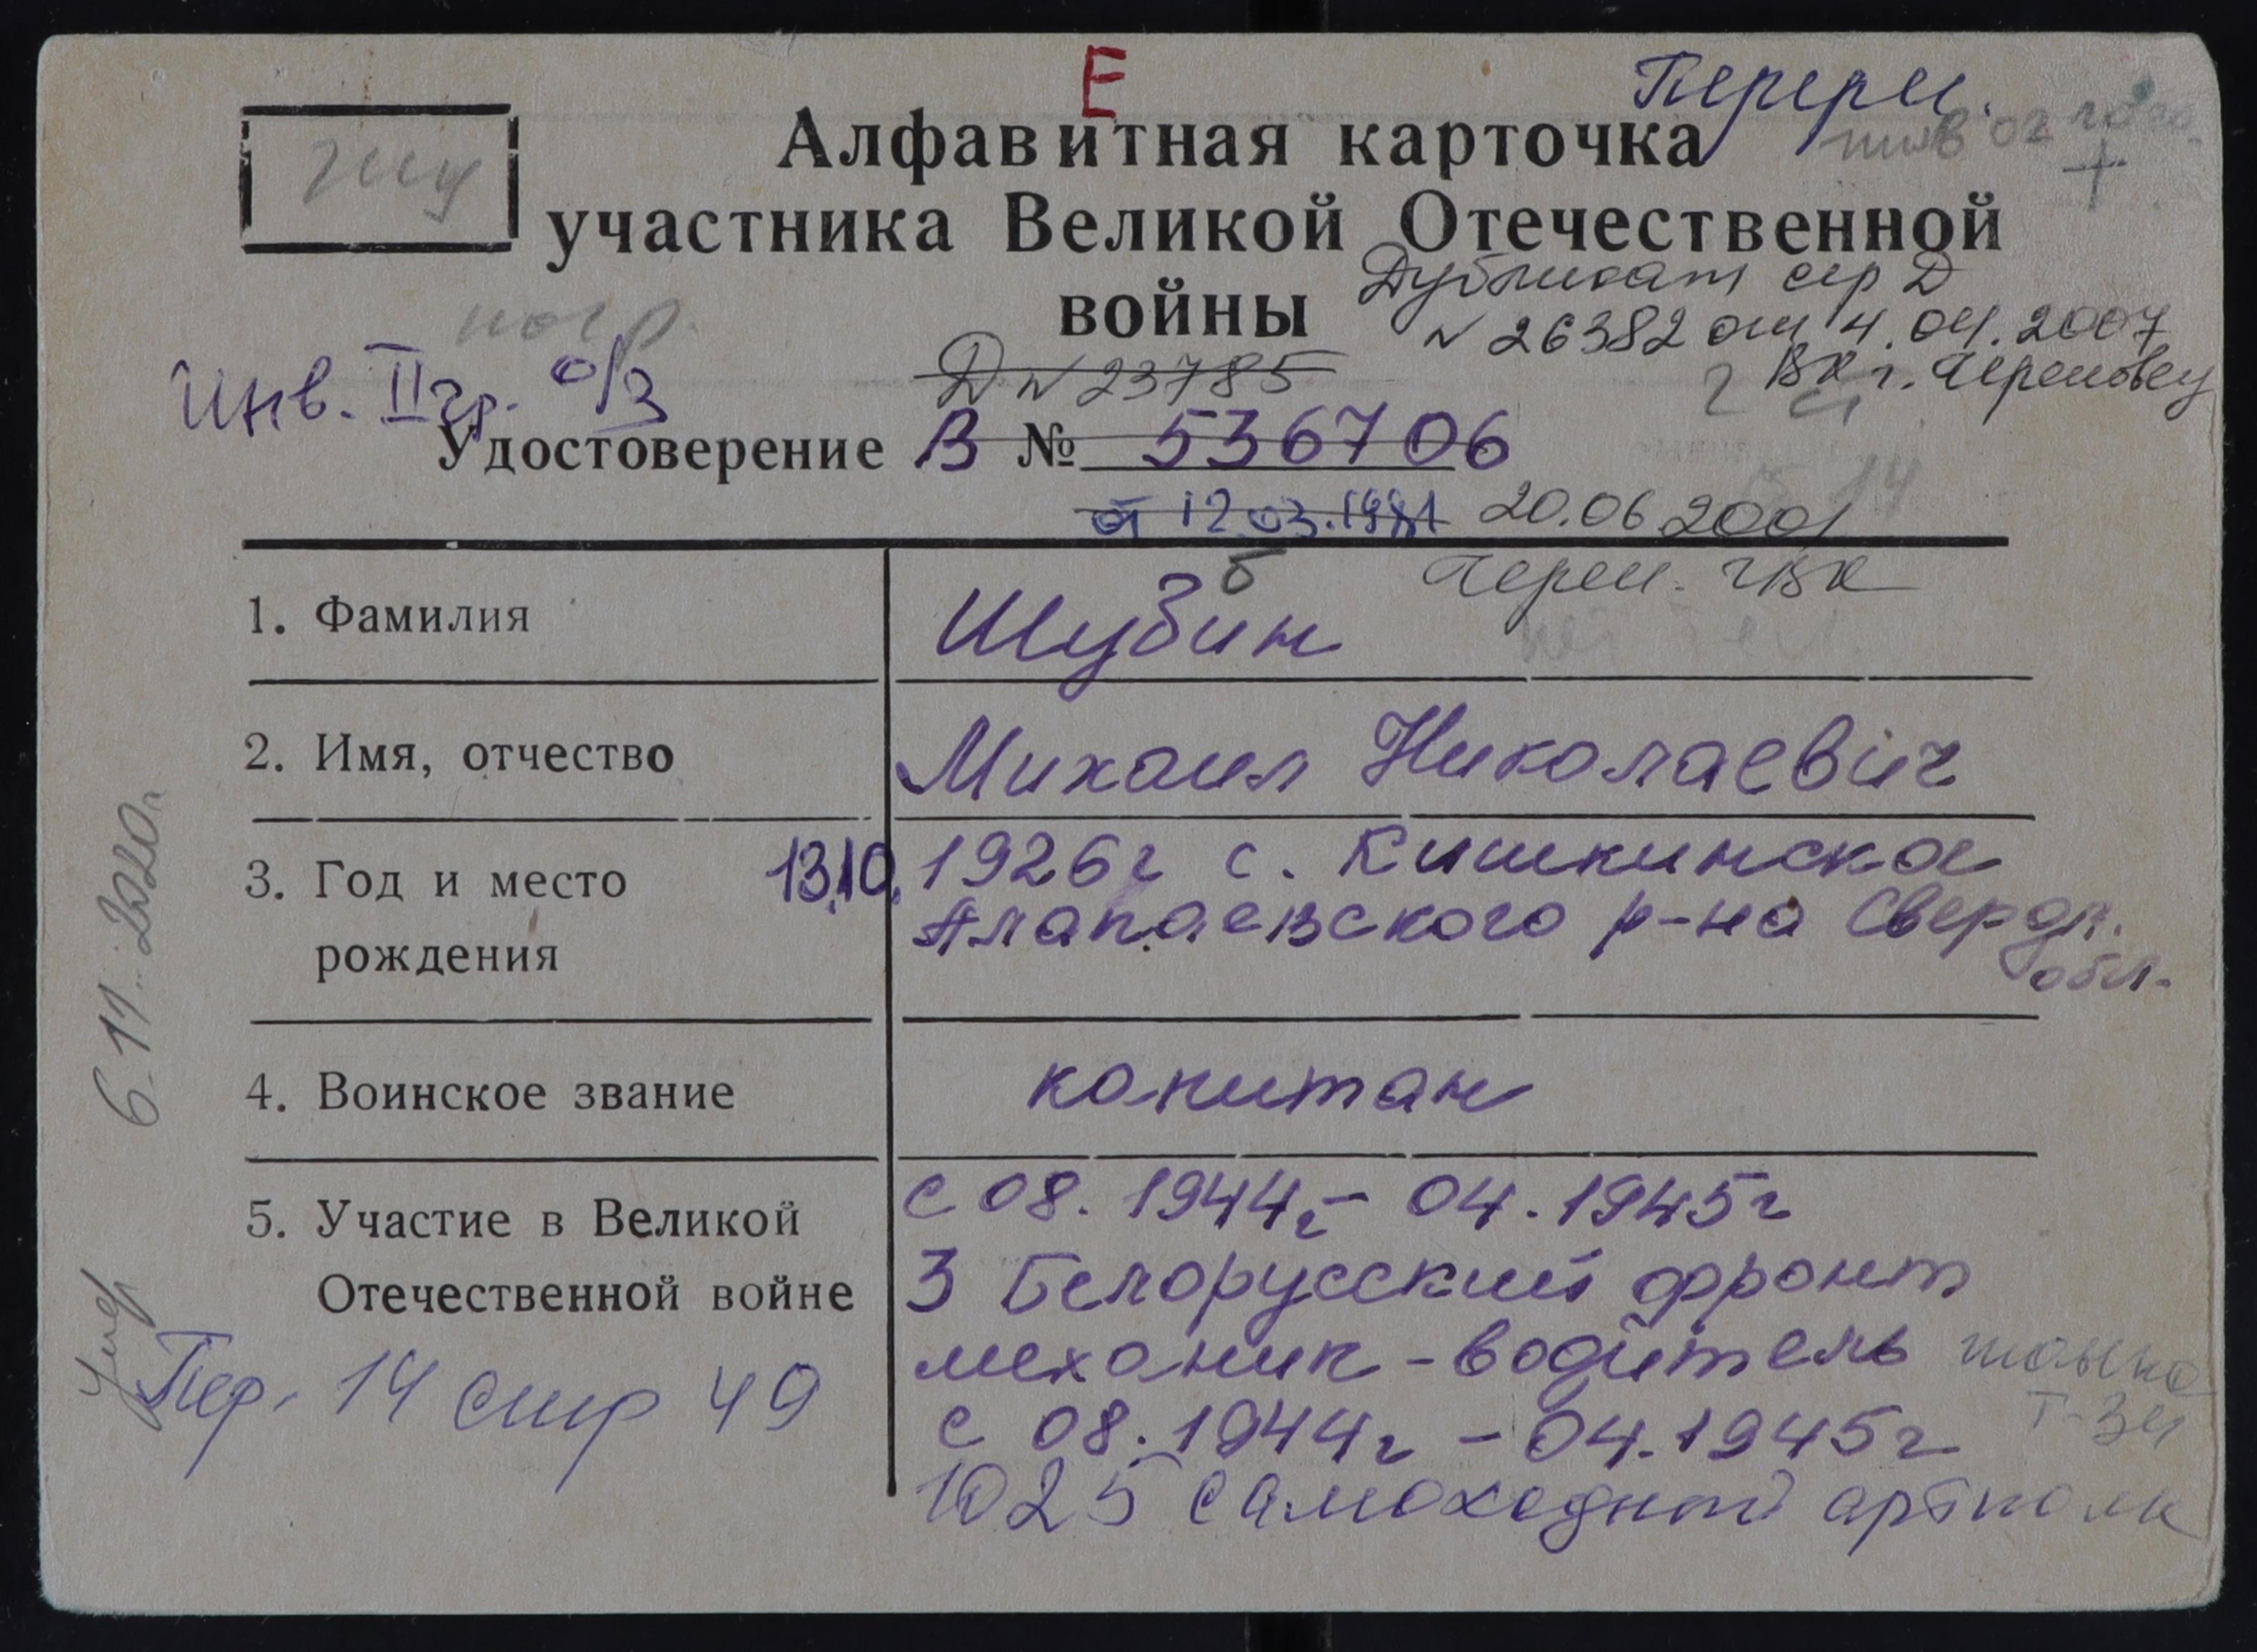 Е
Перерег.
Алфавитная карточка
участника Великой Отечественной
войны
Дубликат сер Д
№ 26382 от 4.04.2007
ВК г. Череповец
Инв. II гр. о/з
Д № 23785
Удостоверение В № 536706
от 12.03.1981 20.06.2001
Череп. ГВК
1. Фамилия
Шубин
б
2. Имя, отчество
Михаил Николаевич
3. Год и место рождения
13.10. 1926г с. Кишкинское
Алапаевского р-на Свердл.
обл.
4. Воинское звание
капитан
5. Участие в Великой
Отечественной войне
с 08.1944г - 04.1945г
3 Белорусский фронт
механик-водитель танка
Т-34
с 08.1944г - 04.1945г
1025 самоходный артполк
Умер
6.11.2020г.
Пер. 14 стр 49